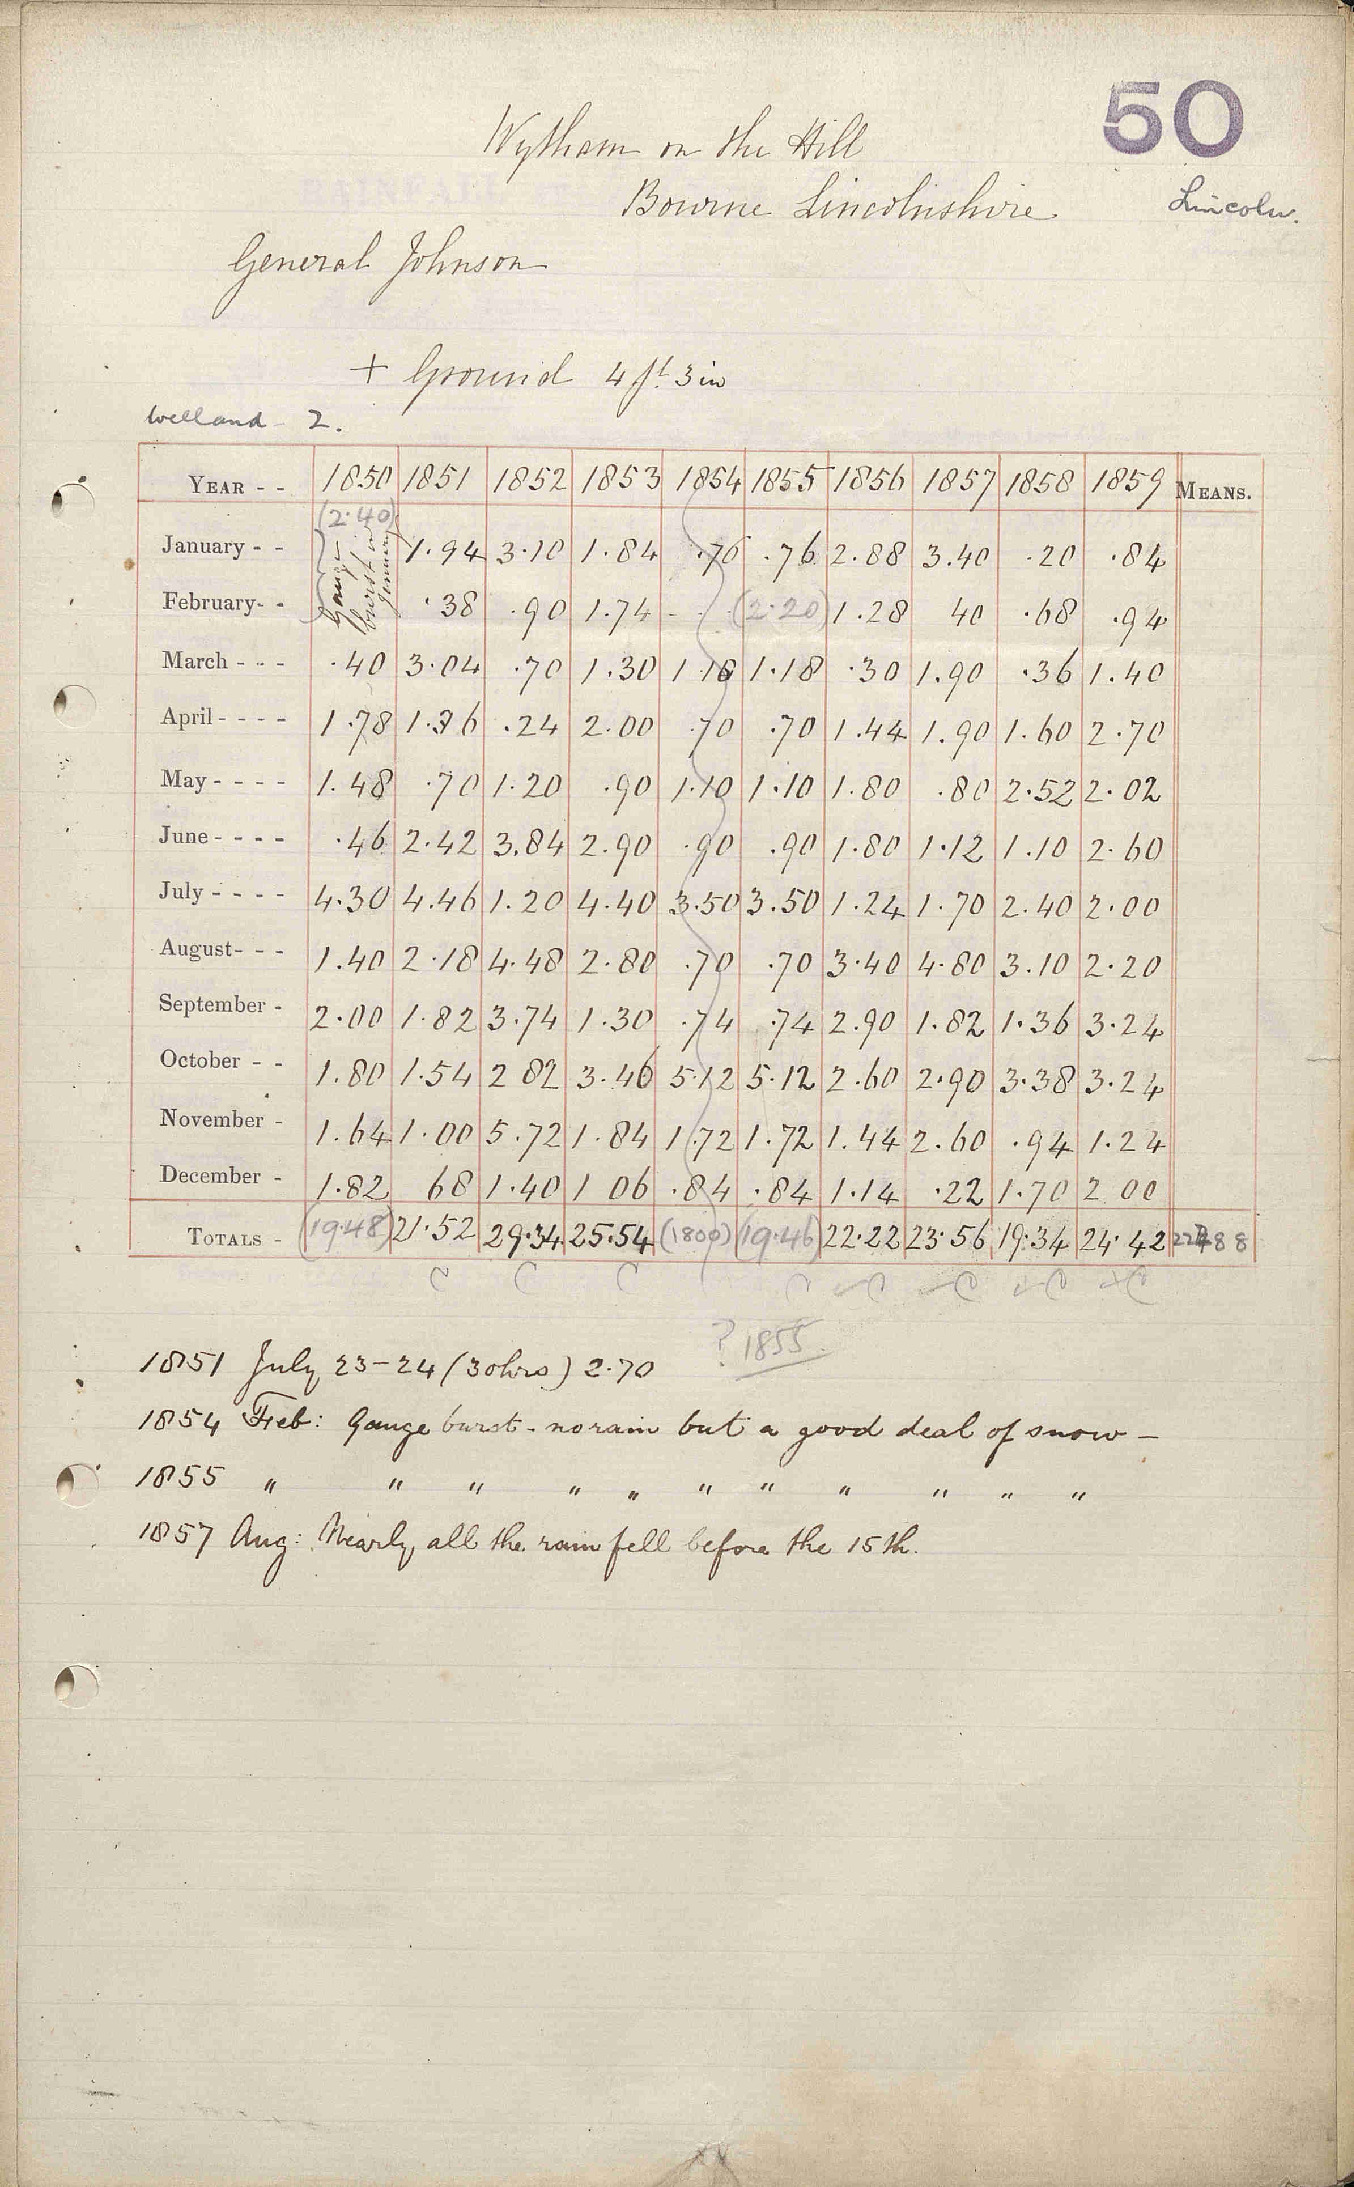 50
Wytham on the Hill
Bourne Lincolnshire
Lincoln.
General Johnson
+ Ground 4 ft 3 in
Welland 2.
YEAR - - 1850 1851 1852 1853 1854 1855 1856 1857 1858 1859 MEANS.
(2.40) Gauge burst in January
January - - 1.94 3.10 1.84 .76 .76 2.88 3.40 .20 .84
February - - .38 .90 1.74 - - (2.20) 1.28 40 .68 .94
March - - - .40 3.04 .70 1.30 1.18 1.18 .30 1.90 .36 1.40
April - - - - 1.78 1.36 .24 2.00 .70 .70 1.44 1.90 1.60 2.70
May - - - - 1.48 .70 1.20 .90 1.10 1.10 1.80 .80 2.52 2.02
June - - - - .46 2.42 3.84 2.90 .90 .90 1.80 1.12 1.10 2.60
July - - - - 4.30 4.46 1.20 4.40 3.50 3.50 1.24 1.70 2.40 2.00
August - - - 1.40 2.18 4.48 2.80 .70 .70 3.40 4.80 3.10 2.20
September - 2.00 1.82 3.74 1.30 .74 .74 2.90 1.82 1.36 3.24
October - - 1.80 1.54 2 82 3.46 5.12 5.12 2.60 2.90 3.38 3.24
November - 1.64 1.00 5.72 1.84 1.72 1.72 1.44 2.60 .94 1.24
December - 1.82 68 1.40 1 06 .84 .84 1.14 .22 1.70 2 00
TOTALS - (19.48) 21.52 29.34 25.54 (1800) (19.46) 22.22 23.56 19.34 24.42
? 1855.
1851 July 23-24 (30hrs) 2.70
1854 Feb: Gauge burst - no rain but a good deal of snow -
1855 " " " " " " " " " " "
1857 Aug: Nearly all the rain fell before the 15th.